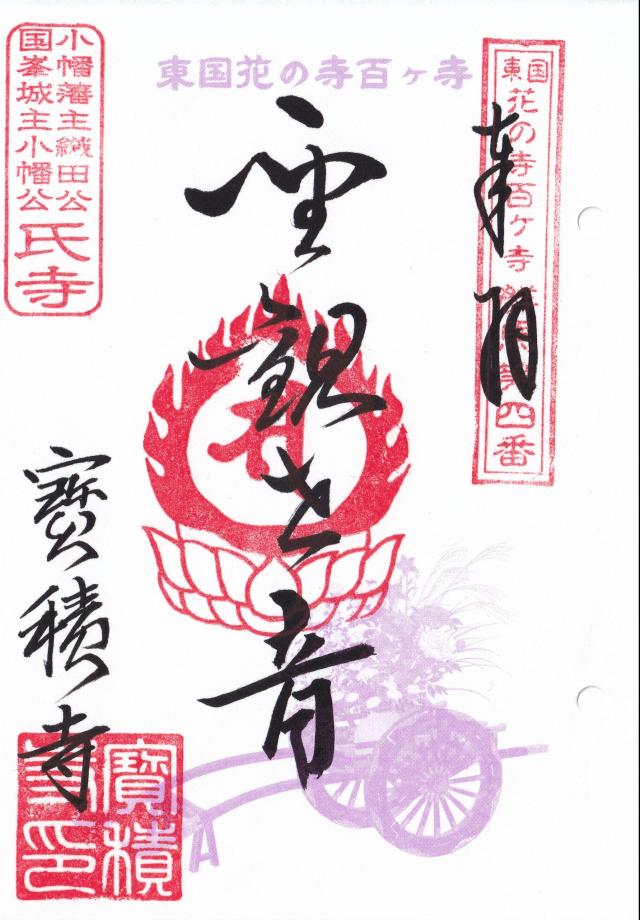 東国花の寺百ヶ寺
東国
花の寺百ケ寺群馬第四番
奉拝
聖観世音
小幡藩主織田公
国峯城主小幡公
氏寺
寶積寺
寶積
寺印